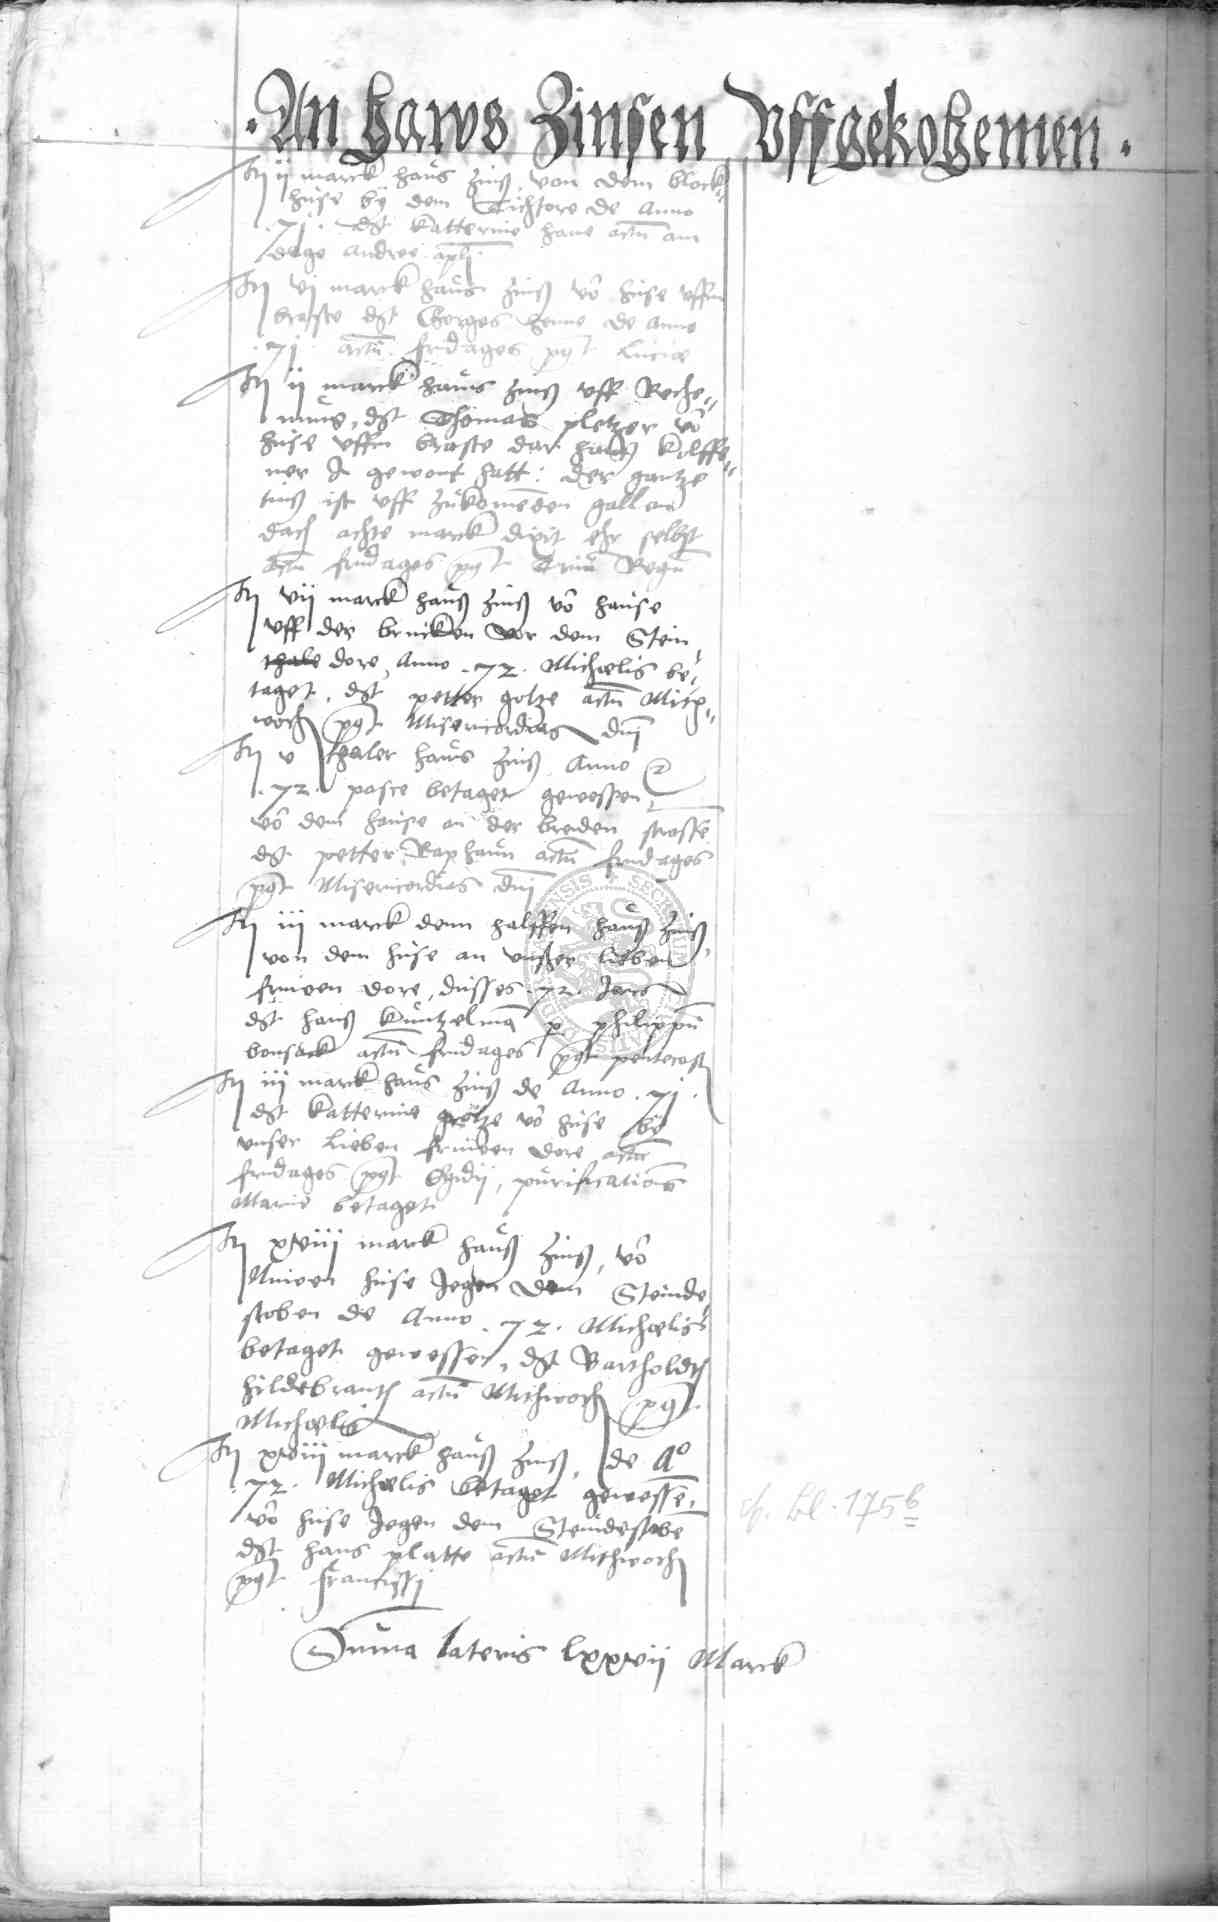 · An Haws Zinsen Uffgekohemen ·
Itj ij marck haus zinß, von dem block=
huse by dem Dichtore de Anno
.71. dt Katterine hane actu am
dage Andree apli
Itj vj marck haus zinß vo huse uffm
braste dt Gorges Henne de Anno
.71. actu fridages pt Lucie
Itj ij marck haus zinß uff Reche=
nung, dt Thomas pletzer vo
huse uffm braste dar hans
ner In gewont hatt: der gantze
zinß ist uff zukomeden gallen
dach achte marck dixit ehr selbst
actu fridages pt Triu Regu
Itj vij marck hauß zinß vo hause
uff der brucken vor dem Stein
thale dore, Anno .72. Michaelis be,
taget, dt petter golze actu Mitt=
woch pt Misericordias dni
Itj v thaler haus zinß Anno
.72. pasce betaget gewessen,
vo dem hause an der breden strasse
dt petter Raphaun actu fridages
pt Misericordias dni
Itj iij marck dem halffen hauß zinß,
von dem huse an unßer lieben
fruwen dore, dusses .72. Jares
dt hanß Kuntzelma p philippu
bonsack actu fridages pt pentecost
Itj iij marck haus zinß de Anno .71.
dt Katterine grotze vo huse by
unser lieben fruwen dore actu
fridages pt Egidij, purificationis
Marie betaget
Itj xviij marck hauß zinß, vo
Nuwen huse Jegen dem Steinde
stoben de Anno .72. Michaelis
betaget gewessen, dt Bartholdt
hildebrant actu Mithwoch pt
Michaelis
Itj xviij marck hauß zinß, de Ao
.72. Michaelis betaget gewesse,
vo huse Jegen dem Steindestobe
dt hans platte actu Mithwoch
pt Francissj
Suma lateris lxxvij Marck
bl. 175b